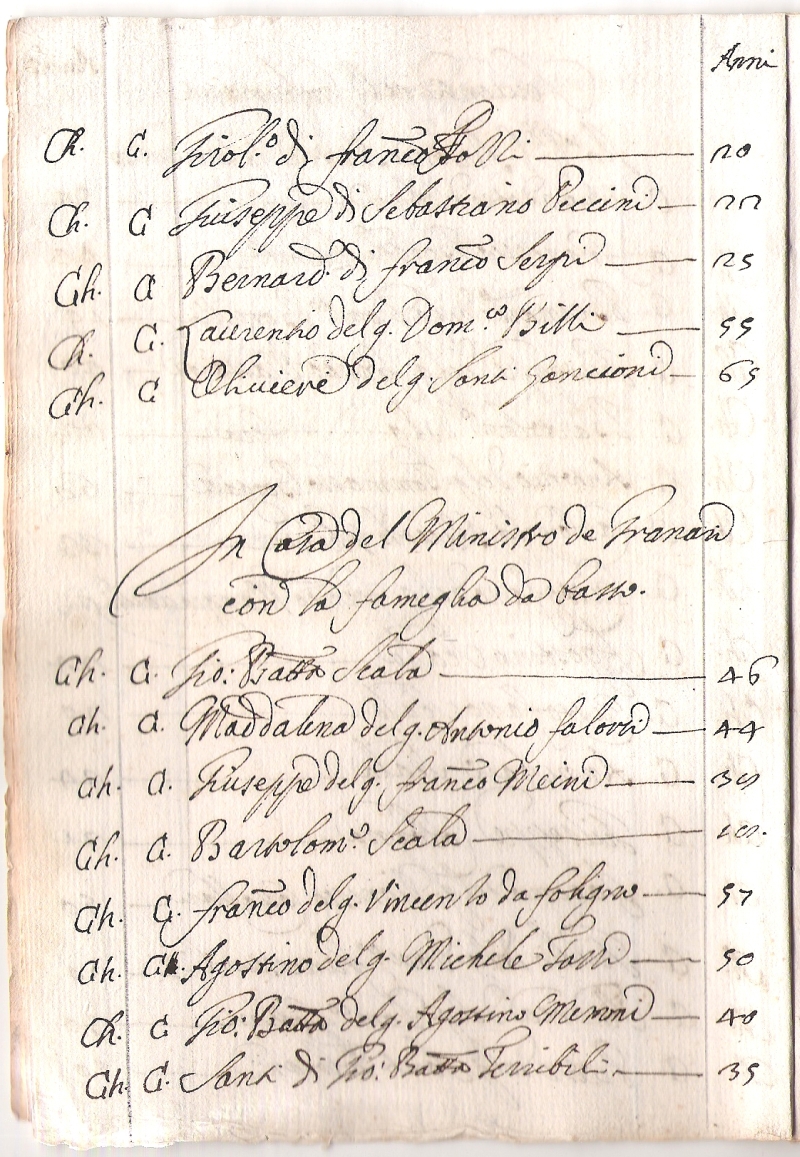 Anni
Ch. C. Girol.º di Franco Tolli 20
Ch. C Giuseppe di Sebastiano Piccini 22
Ch. C Bernard.º di Franco Serpi 25
Ch. C. Laurentio del q. Dom.co Billi 55
Ch. C Oliviere del q. Santi 65
In Casa del Ministro de Granari
con la fameglia da basso.
Ch. C. Gio: Batta Scala 46
Ch. C. Maddalena del q. Antonio 44
Ch. C. Giuseppe del q. Franco Meini
Ch. C. Bartolom.º Scala
Ch. C. Franco del q. Vincento da Foligno 57
Ch. C. Agostino del q. Michele 50
Ch. C Gio: Batta del q. Agostino Memmi 40
Ch. C. Santi di Gio: Batta Terribili 35